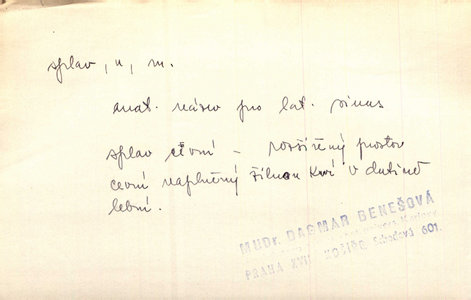 splav, u, m.
anat. název pro lat. sinus
splav cévní - rozšířený prostor
cevní naplněný žilnou krví v dutině
lební.
MUDr. DAGMAR BENEŠOVÁ
PRAHA XVII KOŠÍŘE 601.